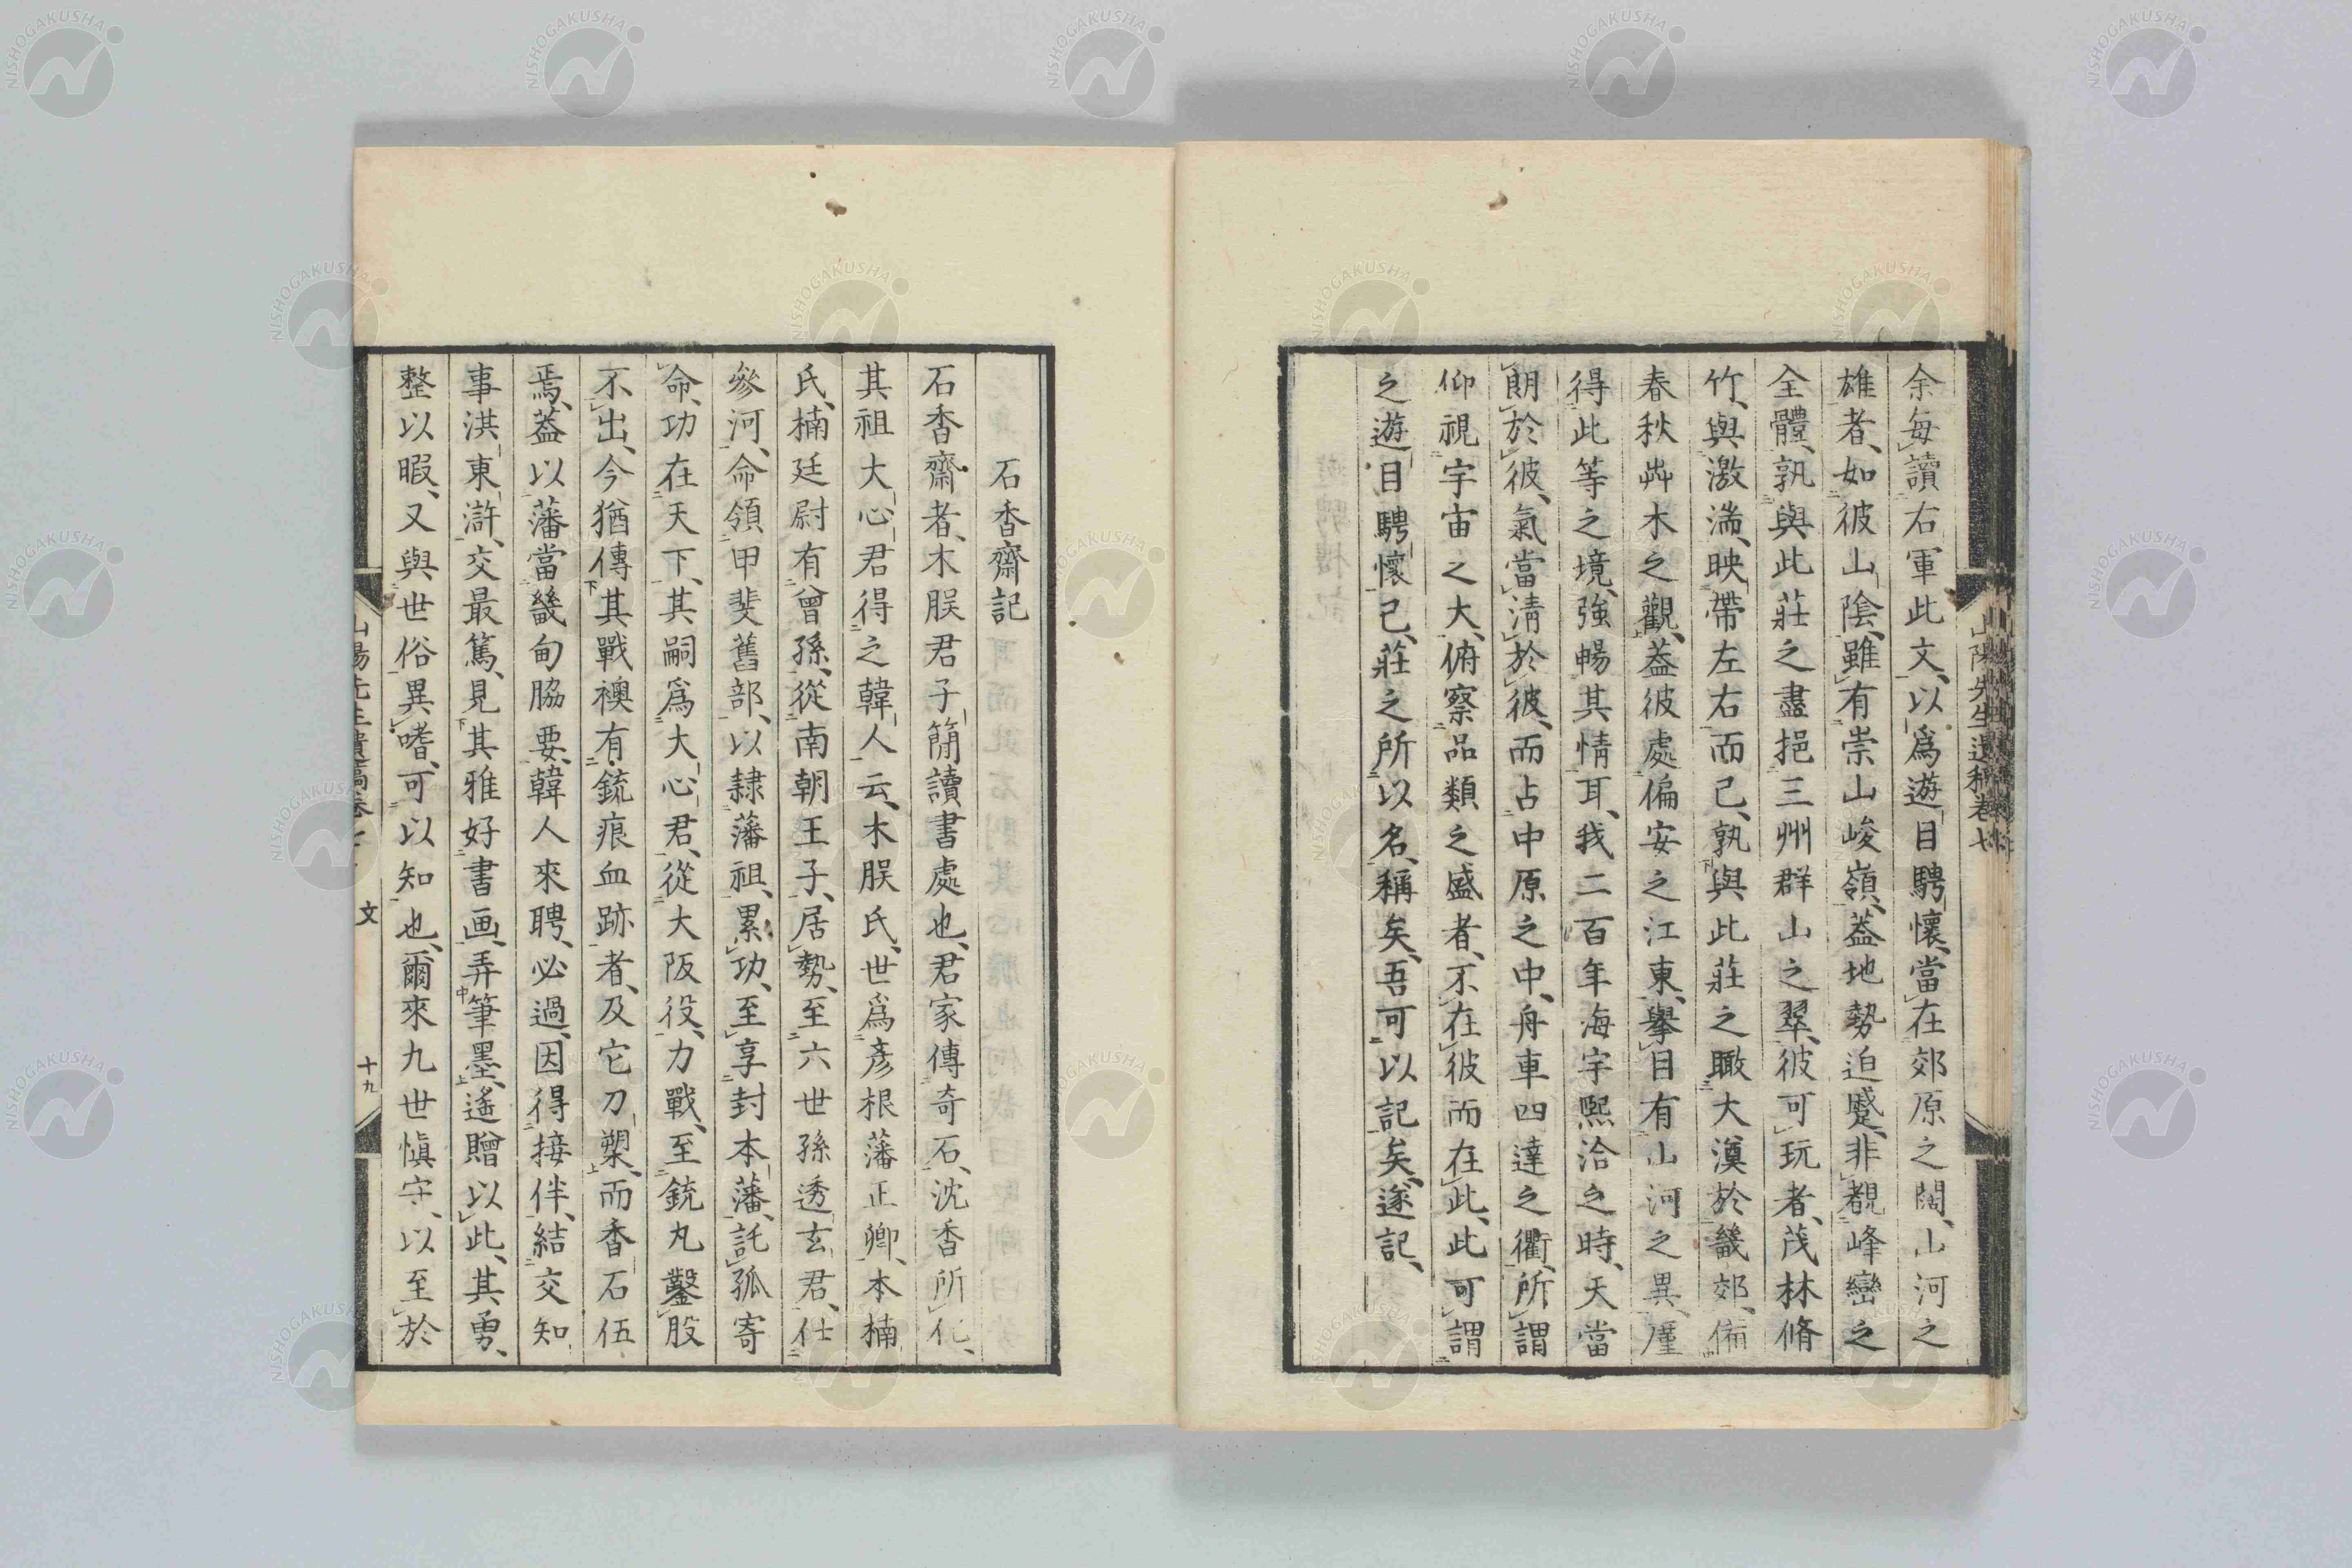 余每讀右軍此文、以爲遊目騁懷、當在郊原之闊、山河之
雄者、如彼山陰、雖有崇山峻嶺、蓋地勢迫蹙、非覩峰巒之
全體、孰與此莊之盡挹三州群山之翠、彼可玩者、茂林脩
竹、與激湍、映帶左右而已、孰與此莊之瞰大漠於畿郊、備
春秋艸木之觀、蓋彼處偏安之江東、擧目有山河之異、厪
得此等之境、強暢其情耳、我二百年海宇熈洽之時、天當
朗於彼、氣當淸於彼、而占中原之中、舟車四達之衢、所謂
仰視宇宙之大、俯察品類之盛者、不在彼而在此、此可謂
之遊目騁懷已、莊之所以名稱矣、吾可以記矣、遂記、
山陽先生遺稿卷七
石香齋記
石香齋者、木脵君子簡讀書處也、君家傳奇石、沈香所化、
其祖大心君得之韓人云、木脵氏、世爲彦根藩正卿、本楠
氏、楠廷尉有曾孫、從南朝王子、居勢、至六世孫透玄君、仕
參河、命領甲斐舊部、以隷藩祖、累功、至享封本藩、託孤寄
命、功在天下、其嗣爲大心君、從大阪役、力戰、至銃丸鑿股
不出、今猶傳其戰襖有銃痕血跡者、及它刀槊、而香石伍
焉、蓋以藩當畿甸脇要、韓人來聘、必過、因得接伴、結交知
事洪東滸、交最篤、見其雅好書画、弄筆墨、遙贈以此、其勇、
整以暇、又與世俗異嗜、可以知也、爾來九世愼守、以至於
山陽先生遺稿卷七 文 十九
NISHOGAKUSHA